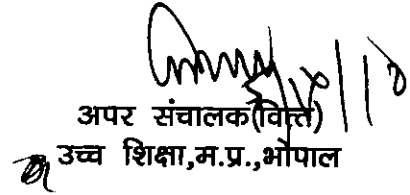 अपर संचालक(वित्त)
उच्च शिक्षा,म.प्र.,भोपाल